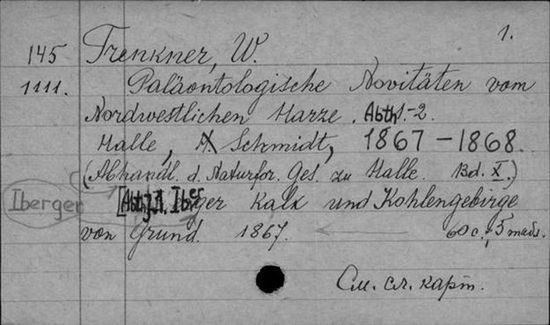 1.
145 Trenkner, W.
1111. Paläontologische Novitäten vom
Nordwestlichen Harze. Abth. 1-2.
Halle, Schmidt, 1867-1868.
(Abhandl. d. Naturfor. Ges. zu Halle. Bd. X.)
Iberger [Abth. 1. Iberger Kalk und Kohlengebirge
von Grund. 1867. 60 c., 5 табл.
См. сл. карт.